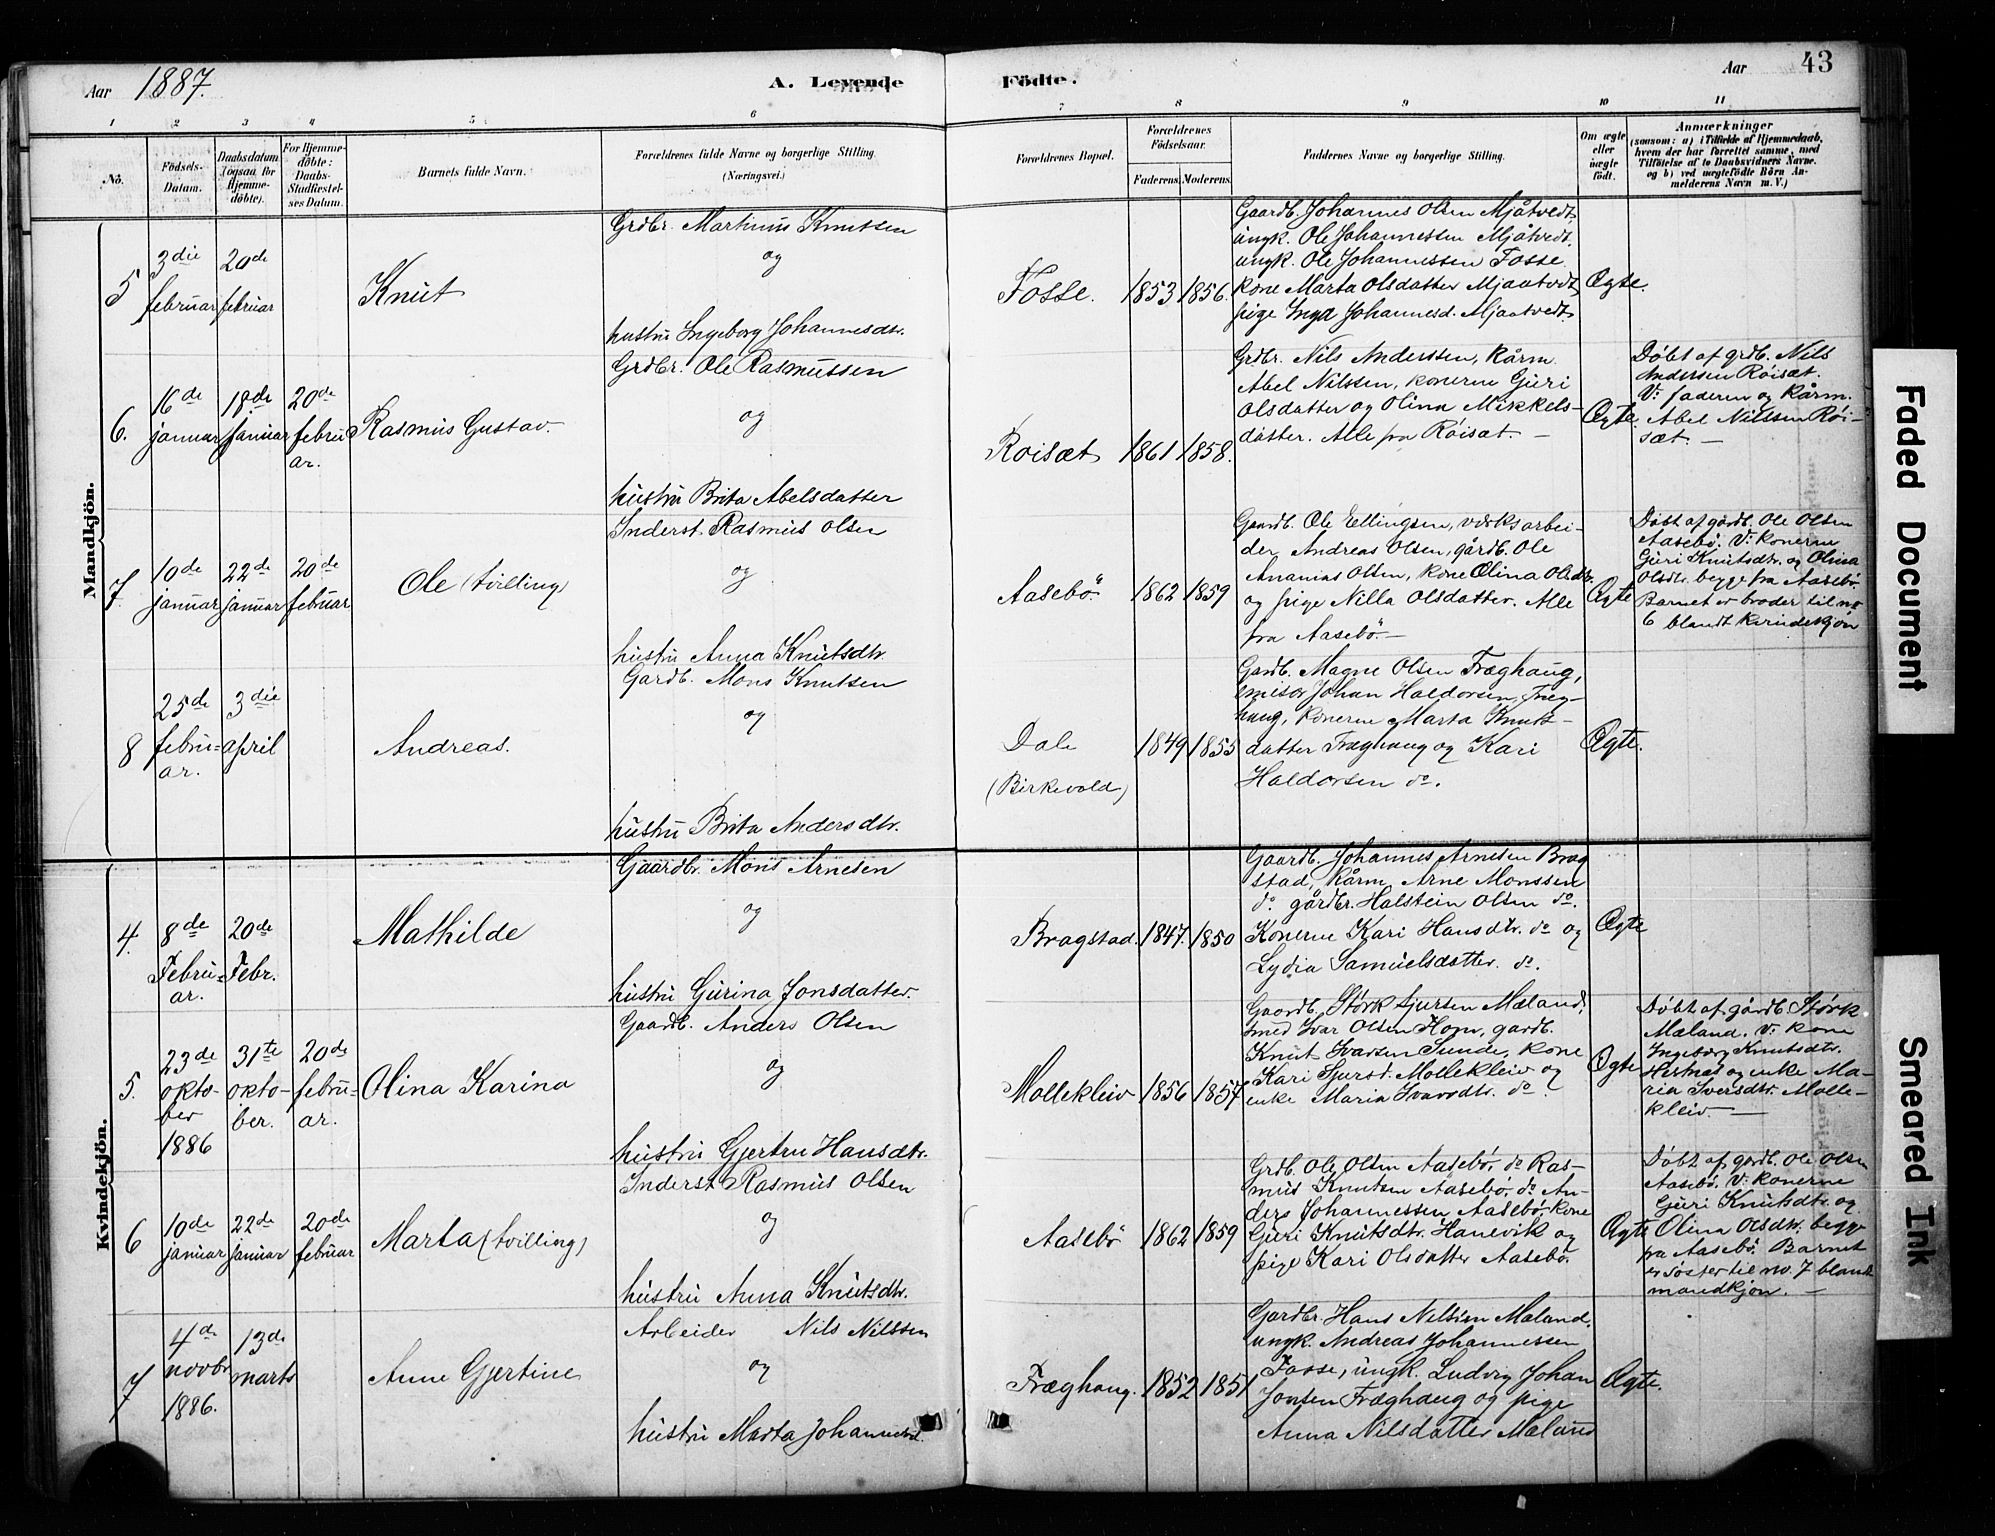 Aar 1887. A. Levende Födte. Aar 43
1 2 3 4 5 6 7 8 9 10 11
No.
Födsels-
Datum.
Daabsdatum
(ogsaa for
Hjemme-
döbte).
For Hjemme-
döbte:
Daabs-
Stadfæstel-
ses Datum.
Barnets fulde Navn.
Forældrenes fulde Navne og borgerlige Stilling
(Næringsvei.)
Forældrenes Bopæl.
Forældrenes
Födselsaar.
Faderens. Moderens.
Faddernes Navne og borgerlige Stilling.
Om ægte
eller
uægte
født.
Anmærkninger
(saasom: a) i Tilfælde af Hjemmedaab,
hvem der har forrettet samme, med
Tilföielse af to Daabsvidners Navne.
og b) ved uægtefödte Börn An-
melderens Navn m. V.)
Mandkjön.
5
3die
februar
20de
februar
Knut
Grdbr. Martinus Knutsen
og
hustru Ingeborg Johannesdtr.
Fosse. 1853 1856.
Gaardb. Johannes Olsen Mjåtvedt,
ungk. Ole Johannessen Mjåtvedt,
ungk. Ole Johannessen Fosse.
kone Marta Olsdatter Mjaatvedt,
pige Inga Johannesd. Mjaatvedt
Ægte.
6.
16de
januar
18de
januar
20de
febru
ar.
Rasmus Gustav.
Grdbr. Ole Rasmussen
og
hustru Brita Abelsdatter
Röisæt 1861 1858.
Grdbr. Nils Anderssen, kårm.
Abel Nilssen, konerne Guri
Olsdatter og Olina Mikkels-
datter. Alle fra Röisæt. —
Ægte
Döbt af grdb. Nils
Andersen Röisæt.
V: faderen og kårm.
Abel Nilssen Röi-
sæt. —
7.
10de
januar
22de
januar
20de
februar
Ole (tvilling)
Inderst. Rasmus Olsen
og
hustru Anna Knutsdtr.
Aasebö 1862 1859
Gaardb. Ole Ellingsen, værksarbei-
der Andreas Olsen, gårdb. Ole
Ananias Olsen, kone Olina Olsdtr.
og pige Nilla Olsdatter. Alle
fra Aasebö —
Ægte
Döbt af gårdb. Ole Olsen
Aasebö. V: konerne
Guri Knutsdtr. og Olina
Olsdtr. begge fra Aasebö.
Barnet er broder til no
6 blandt kvindekjön
8
25de
febru-
ar.
3die
april
Andreas.
Gardb. Mons Knutsen
og
hustru Brita Andersdtr.
Dale
(Birkevold)
1849 1855
Gardb. Magne Olsen Fræghaug,
Johan Haldorsen Fræg-
haug, konerne Marta Knuts-
datter Fræghaug og Kari
Haldorsen do.
Ægte.
Kvindekjön.
4.
8de
Febru-
ar.
20de
Febr.
Mathilde
Gaardbr. Mons Arnesen
og
hustru Gurina Jonsdatter.
Bragstad. 1847. 1850
Gaardb. Johannes Arnesen Brag
stad, kårm. Arne Monssen
do. gårdbr. Halstein Olsen do.
Konerne Kari Hansdtr. do og
Lydia Samuelsdatter. do.
Ægte
5.
23de
okto-
ber
1886
31te
okto-
ber.
20de
febru-
ar.
Olina Karina
Gaardb. Anders Olsen
og
hustru Gjertru Hansdtr.
Mollekleiv 1856 1857
Gaardb. Störk Sjursen Mæland,
smed Ivar Olsen Hom, gardb.
Knut Ivarsen Sunde, kone
Kari Sjursd. Mollekleiv og
enke Maria Ivarsdtr. do.
Ægte
Döbt af gårdb. Störk
Mæland. V: kone
Ingeborg Knutsdtr.
Hertnæs og enke Ma-
ria Iversdtr. Molle-
kleiv. —
6
10de
januar
22de
januar
20de
februar
Marta (tvilling)
Inderst. Rasmus Olsen
og
hustru Anna Knutsdtr.
Aasebö 1862 1859
Grdb. Ole Olsen Aasebö, do Ras-
mus Knutsen Aasebö, do An-
ders Johannessen Aasebö, kone
Guri Knutsdtr. Hanevik og
pige Kari Olsdatter Aasebö.
Ægte
Döbt af gardb. Ole Olsen
Aasebö. V: konerne
Guri Knutsdtr. og
Olina Olsdtr. begge
fra Aasebö. Barnet
er söster til no. 7 blandt
mandkjön. —
7
4de
novbr
1886.
13de
marts
Anne Gjertine
Arbeider Nils Nilssen
og
hustru Marta Johannesd.
Fræghaug. 1852 1851
Gardbr. Hans Nilsen Mæland,
ungk. Andreas Johannessen
Fosse, ungk. Ludvig Johan
Jonsen Fræghaug og pige
Anna Nilsdatter Mæland
Ægte.
Faded Document
Smeared Ink